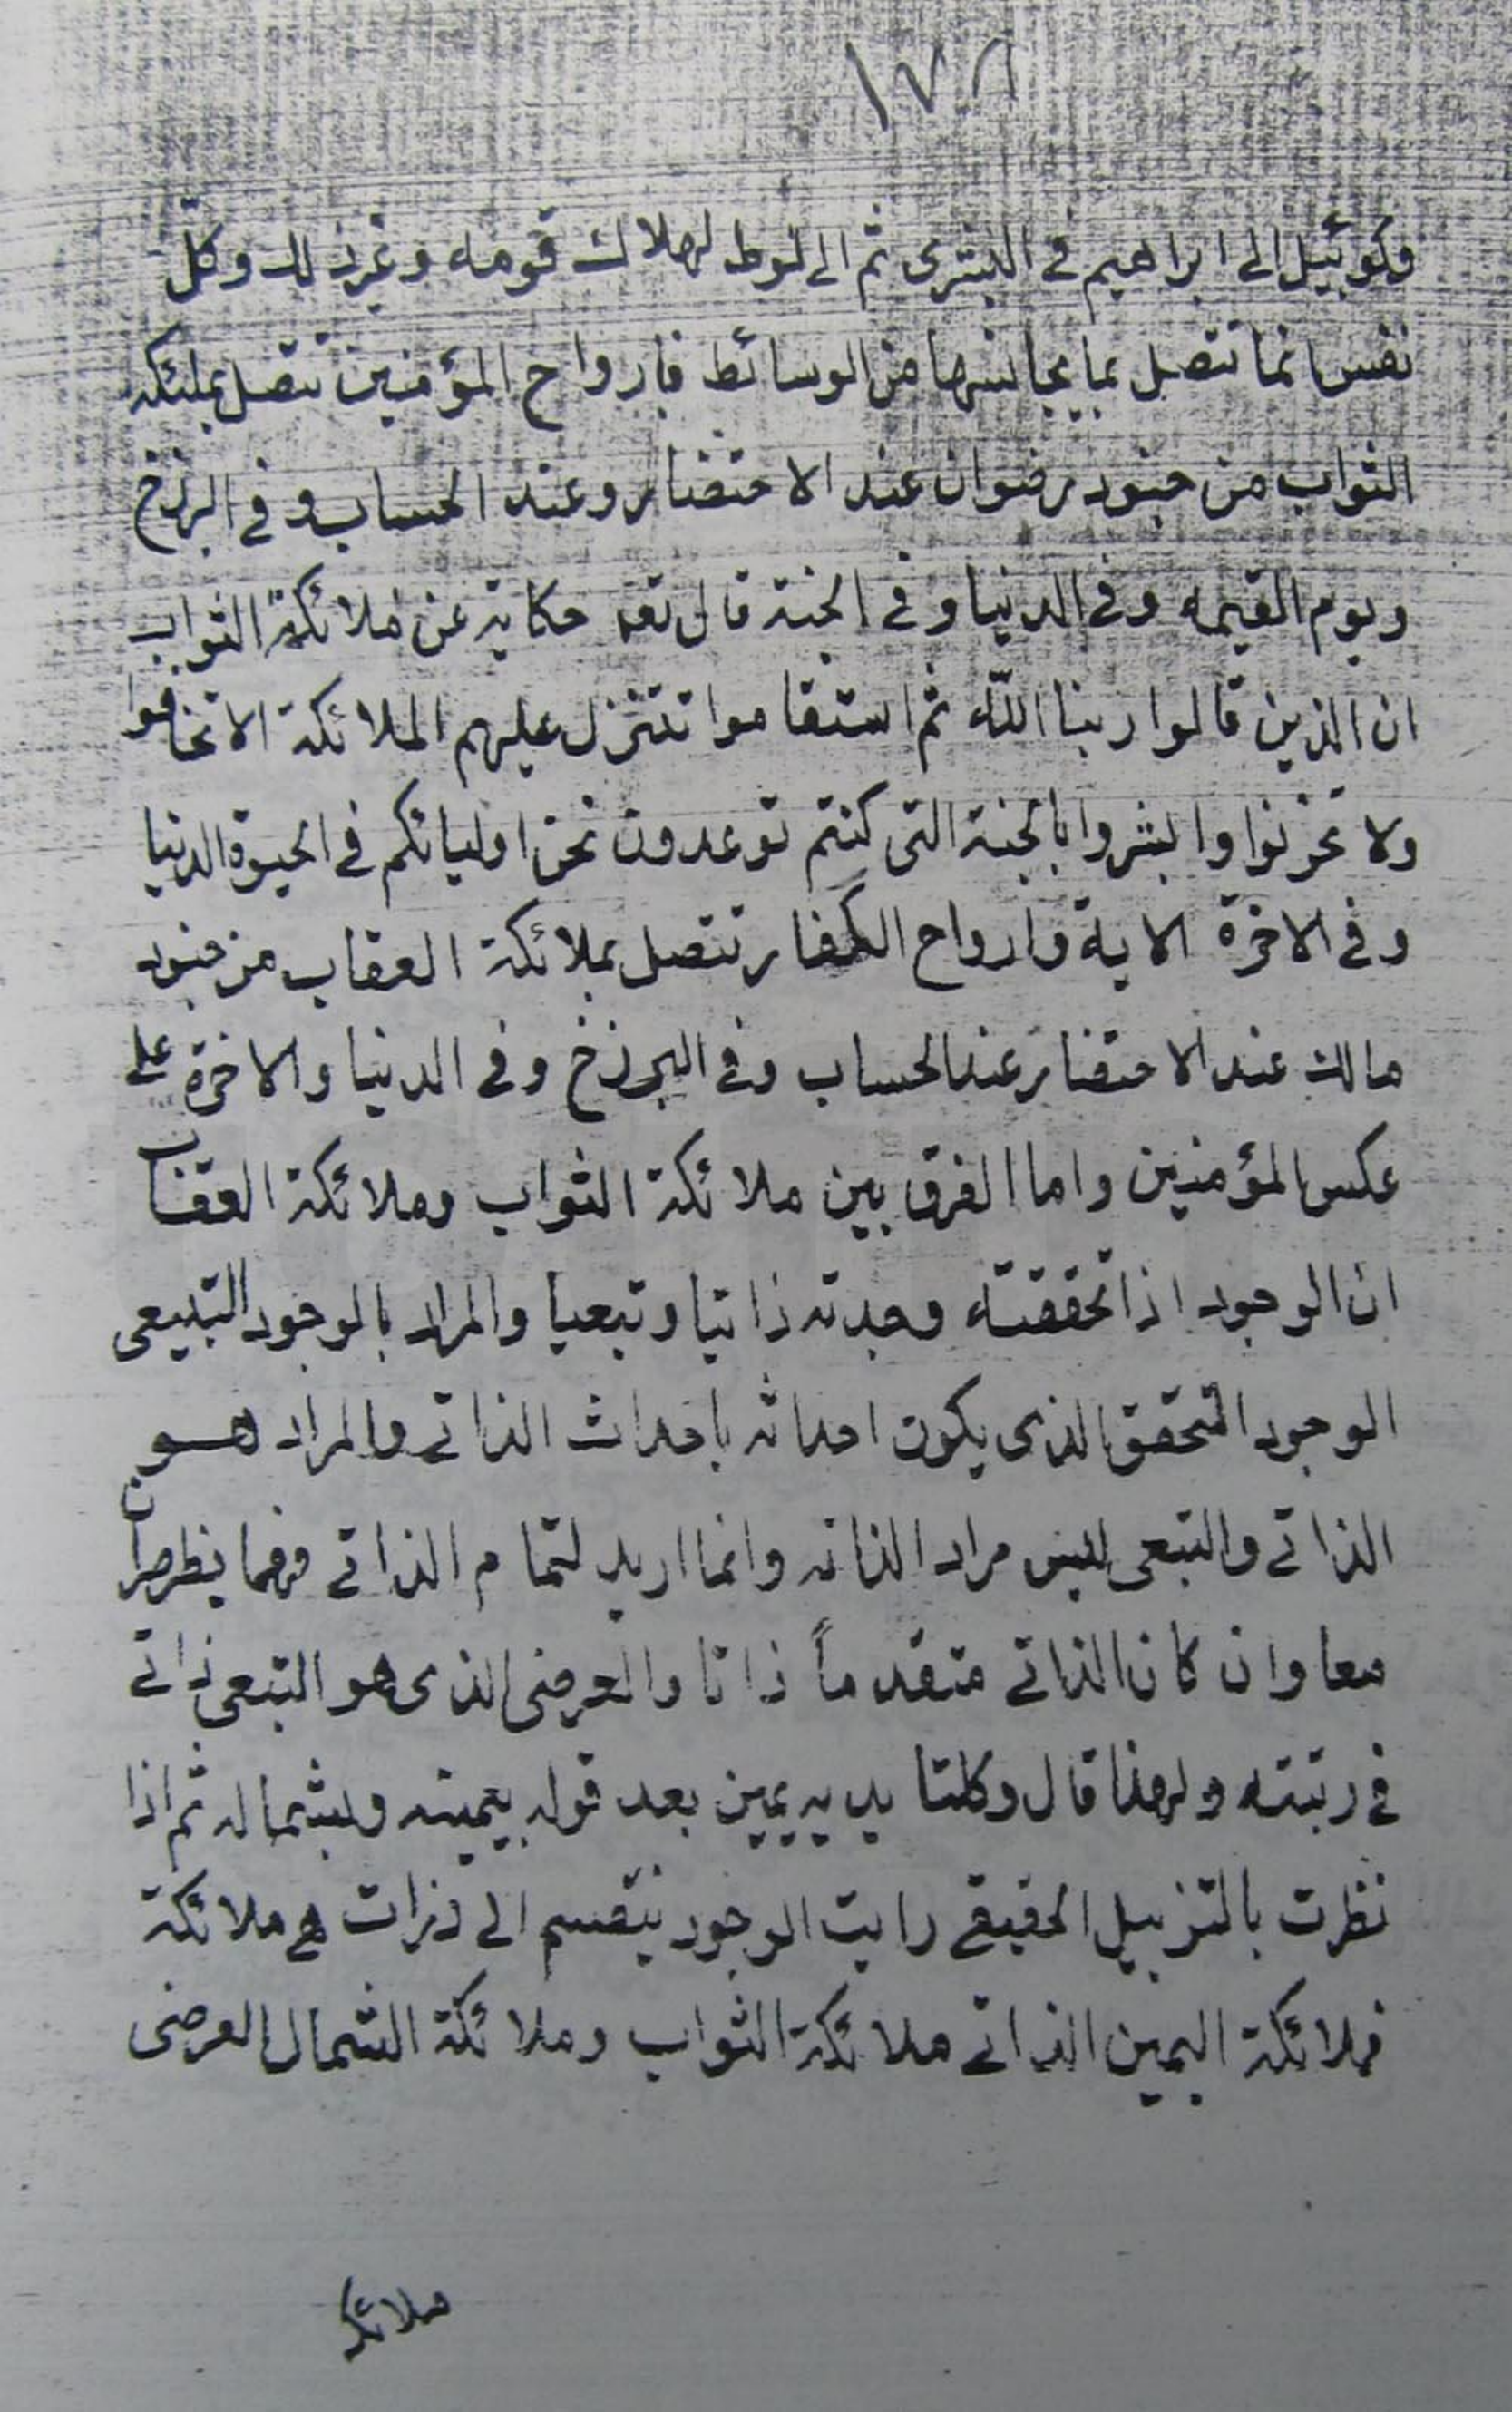 ١٧٨
وكوبئيل الى ابراهيم في البشرى ثم الى لوط لهلاك قومه وغير ذلك وكل
نفس انما تتصل بما يجانسها من الوسائط فارواح المؤمنين تتصل بملئكة
الثواب من جنود رضوان عند الاحتضار وعند الحساب وفي البرزخ
ويوم القيمه وفي الدنيا وفي الجنة قال تعه حكاية عن ملائكة الثواب
ان الذين قالوا ربنا الله ثم استقاموا تتنزل عليهم الملائكة الا تخافوا
ولا تحزنوا وابشروا بالجنة التى كنتم توعدون نحن اوليائكم في الحيوة الدنيا
وفي الاخرة الاية وارواح الكفار تتصل بملائكة العقاب من جنود
مالك عند الاحتضار عند الحساب وفي البرزخ وفي الدنيا والاخرة على
عكس المؤمنين واما الفرق بين ملائكة الثواب وملائكة العقاب
ان الوجود اذا تحققته وجدته ذاتيا وتبعيا والمراد بالوجود التبيعى
الوجود المتحقق الذى يكون احداثه باحداث الذاتي والمراد هو
الذاتي والتبعى ليس مراد الذاته وانما اريد لتمام الذاتي وهما يظهران
معا وان كان الذاتي متقدماً ذاتا والعرضى الذى هو التبعى ذاتي
في رتبته ولهذا قال وكلتا يديه يمين بعد قوله بيمينه وبشماله ثم اذا
نظرت بالتزييل الحقيقي رايت الوجود ينقسم الى ذرات هي ملائكة
فملائكة اليمين الذاتي ملائكة الثواب وملائكة الشمال العرضى
ملائكة